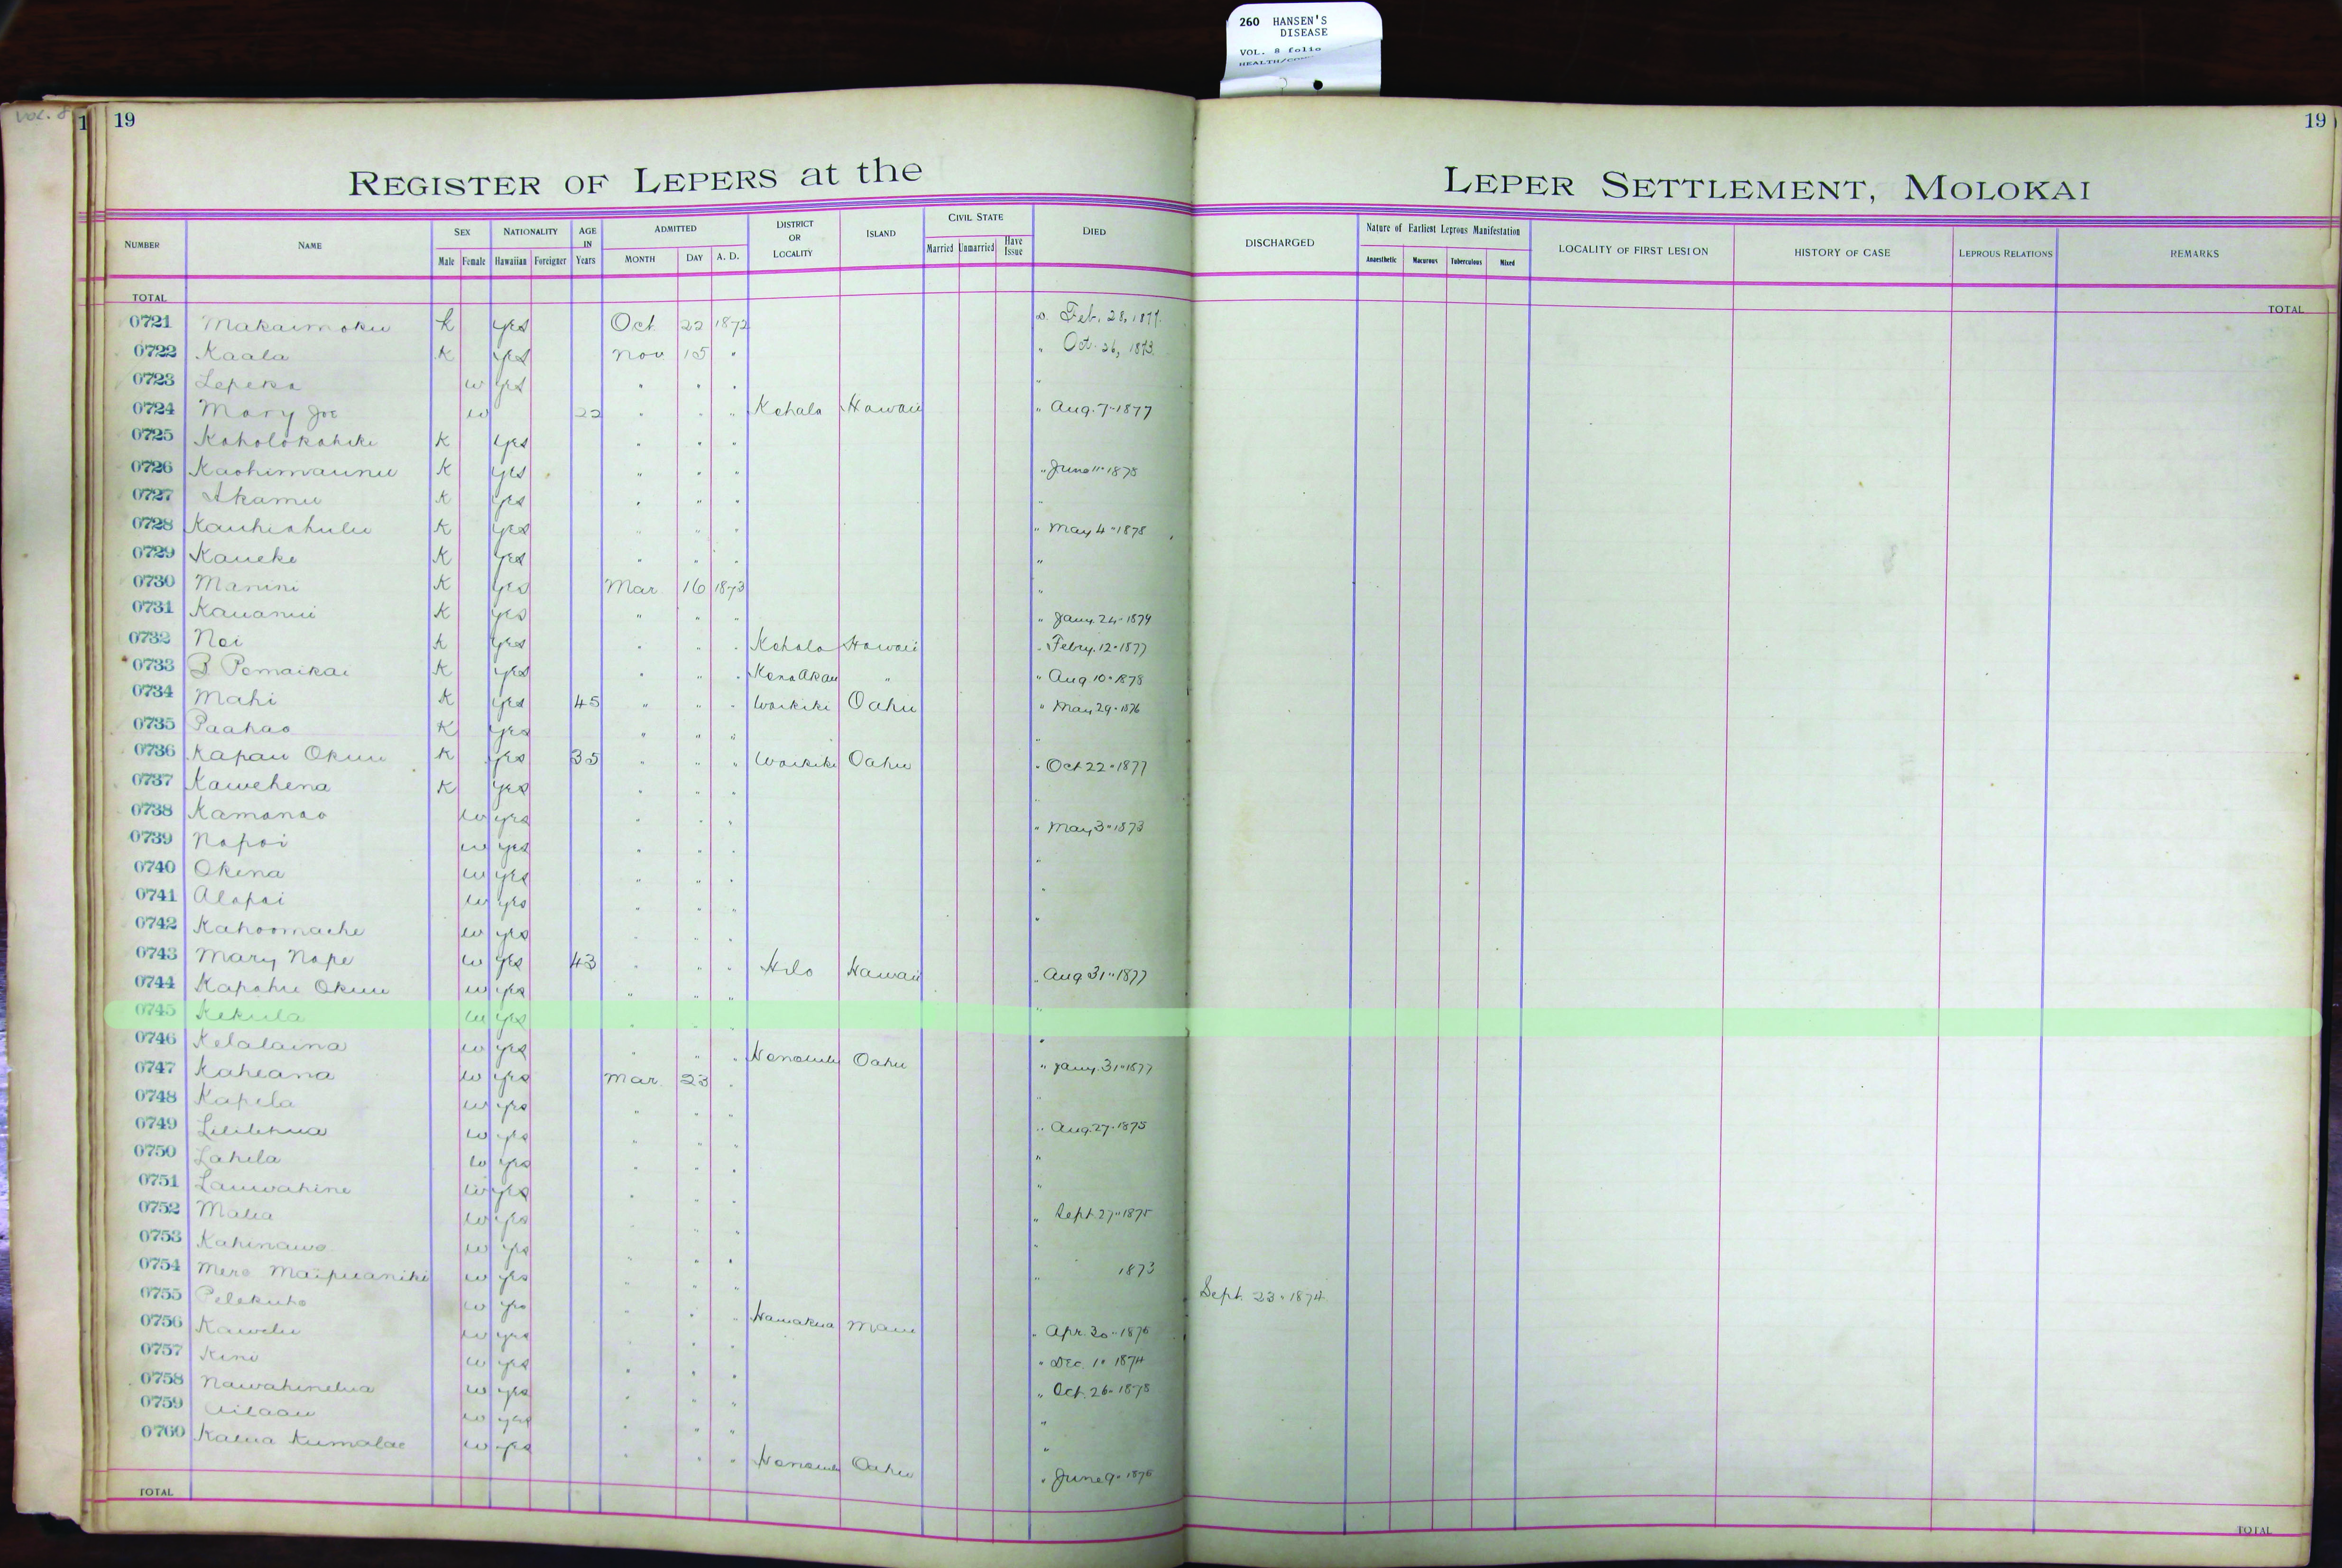 260 HANSEN'S
DISEASE
VOL. 8 folio
VOL. 8
1 19 19
REGISTER OF LEPERS at the LEPER SETTLEMENT, MOLOKAI
NUMBER NAME SEX Male Female NATIONALITY Hawaiian Foreigner AGE IN Years ADMITTED MONTH DAY A. D. DISTRICT OR LOCALITY ISLAND CIVIL STATE Married Unmarried Have Issue DIED DISCHARGED Nature of Earliest Leprous Manifestation Anaesthetic Macurous Tuberculous Mixed LOCALITY OF FIRST LESION HISTORY OF CASE LEPROUS RELATIONS REMARKS
TOTAL TOTAL
0721 Makaimoku k yes Oct 22 1872 Feb. 28, 1877.
0722 Kaala K yes Nov 15 " " Oct. 26, 1873.
0723 Lepeka w yes " " " "
0724 Mary Joe w 22 " " " Kohala Hawaii " Aug. 7 1877
0725 Koholokahiki K yes " " "
0726 Kaohimaunu K yes " " " " June 11 1875
0727 Akamu K yes " " " "
0728 Kauhiahulu K yes " " " " May 4 1875
0729 Kaueke K yes " " " "
0730 Manini K yes Mar 16 1873 "
0731 Kauanui K yes " " " " Jany. 24 1874
0732 Noi K yes " " " Kohala Hawaii " Febry. 12 1877
0733 B Pomaikai K yes " " " Kona Akau " " Aug 10 1878
0734 Mahi K yes 45 " " " Waikiki Oahu " May 29 1876
0735 Paahao K yes " " " "
0736 Kapau Okuu K yes 35 " " " Waikiki Oahu " Oct 22 1877
0737 Kawehena K yes " " " "
0738 Kamanao w yes " " " " May 3 1873
0739 Napoi w yes " " " "
0740 Okina w yes " " " "
0741 Alapai w yes " " " "
0742 Kahoomache w yes " " "
0743 Mary Nape w yes 43 " " " Hilo Hawaii " Aug 31 1877
0744 Kapahu Okuu w yes " " " "
0745 Kekula w yes " " "
0746 Kelalaina w yes " " " Honolulu Oahu " Jany. 31 1877
0747 Kaheana w yes Mar. 23 " "
0748 Kapela w yes " " "
0749 Lililehua w yes " " " " Aug. 27 1875
0750 Lahela w yes " " " "
0751 Lauwahine w yes " " "
0752 Malia w yes " " " Sept. 27 1875
0753 Kahinawe w yes " " " "
0754 Mere Maipuaniki w yes " " " " 1873
0755 Pelekuho w yes " " " Sept. 23 1874
0756 Kawelu w yes " " " Hamakua Maui " Apr. 30 1876
0757 Kini w yes " " " " Dec. 1 1874
0758 Nawahinelua w yes " " " " Oct. 26 1875
0759 Ailaau w yes " " " "
0760 Kalua Kumalae w yes " " " Honolulu Oahu " June 9 1876
TOTAL TOTAL